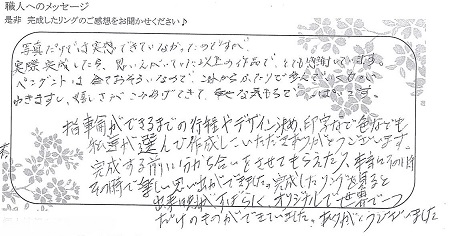 職人へのメッセージ
是非 完成したリングのご感想をお聞かせください♪
写真だけでは実感できていなかったのですが、
実際完成したら、思いえがいていた以上の作品で、とても感動しています。
ペンダントは おそろいなので、これからふたりで歩んで
わきますし、嬉しさがこみあげてきて、幸せな気持ちでいっぱいです。
指輪ができるまでの行程やデザイン決め、印字など色々なことを
選んで作成していただきありがとうございます。
完成する前に打ち合いをさせてもらえたり、本当に
楽しい思い出ができました。完成したリングを見ると
出来映えがすばらしく、オリジナルで世界で一つ
だけのものができていました。ありがとうございました